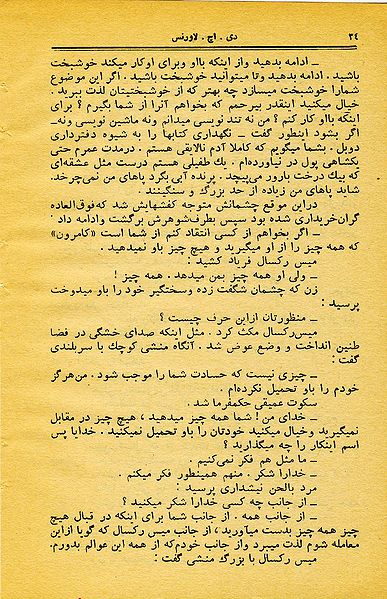 ۲۴ دی . اچ . لاورنس
ــ ادامه بدهید واز اینکه بااو وبرای اوکار میکند خوشبخت
باشید . ادامه بدهید وتا میتوانید خوشبخت باشید . اگر این موضوع
شمارا خوشبخت میسازد چه بهتر که از خوشبختیتان لذت ببرید .
خیال میکنید اینقدر بیرحمم که بخواهم آنرا از شما بگیرم ؟ برای
اینکه بااو کار کنم ؟ من نه تند نویسی میدانم ونه ماشین نویسی ونه ــ
اگر بشود اینطور گفت ــ نگهداری کتابها را به شیوه دفترداری
دوبل . بشما میگویم که کاملا آدم نالایقی هستم . درمدت عمرم حتی
یکشاهی پول در نیاورده‌ام . یك طفیلی هستم درست مثل عشقه‌ای
که بیك درخت بارور می‌پیچد . پرنده آبی بگرد پاهای من نمی‌چرخد.
شاید پاهای من زیاده از حد بزرگ و سنگینند .
دراین موقع چشمانش متوجه کفشهایش شد که فوق‌العاده
گران‌خریداری شده بود سپس بطرف‌شوهرش برگشت وادامه داد .
ــ اگر بخواهم از کسی انتقاد کنم از شما است «کامرون»
که همه چیز را از او میگیرید و هیچ چیز باو نمیدهید .
میس رکسال فریاد کشید :
ــ ولی او همه چیز بمن میدهد . همه چیز !
زن که چشمان شگفت زده وسختگیر خود را باو میدوخت
پرسید :
ــ منظورتان ازاین حرف چیست ؟
میس‌رکسال مکث کرد . مثل اینکه صدای خشگی در فضا
طنین انداخت و وضع عوض شد . آنگاه منشی کوچك با سربلندی
گفت :
ــ چیزی نیست که حسادت شما را موجب شود . من‌هرگز
خودم را باو تحمیل نکرده‌ام .
سکوت عمیقی حکمفرما شد .
ــ خدای من ! شما همه چیز میدهید ، هیچ چیز در مقابل
نمیگیرید وخیال میکنید خودتان را باو تحمیل نمیکنید . خدایا پس
اسم اینکار را چه میگذارید ؟
ــ ما مثل هم فکر نمی‌کنیم .
ــ خدارا شکر . منهم همینطور فکر میکنم .
مرد بالحن نیشداری پرسید :
ــ از جانب چه کسی خدارا شکر میکنید ؟
ــ از جانب همه . از جانب شما برای اینکه در قبال هیچ
چیز همه چیز بدست میآورید ، از جانب میس رکسال که گویا ازاین
معامله شوم لذت میبرد واز جانب خودم‌که از همه این عوالم بدورم.
میس رکسال با بزرگ منشی گفت :